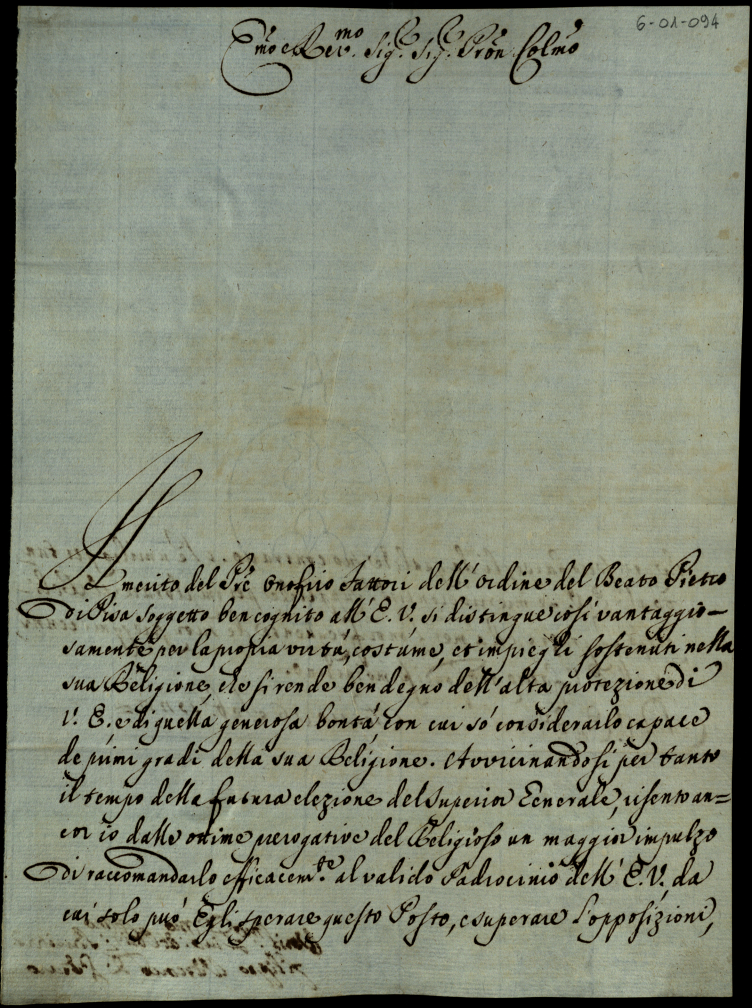 6-01-094
Emo e Rev.mo Sig.r Sig.r Pron Colmo
Il merito del Pre Onofrio Fattori dell'ordine del Beato Pietro
di Pisa soggetto ben cognito all'E. V. si distingue così vantaggio-
samente per la propria virtú, costúme, et impieghi sostenuti nella
sua Religione, che si rende ben degno dell'alta protezione di
V. E. e di quella generosa bontá, con cui só considerarlo capace
de primi gradi della sua Religione. Avvicinandosi per tanto
il tempo della futura elezione del Superior Generale, risento an=
cor io dalle ottime prerogative del Religioso un maggior impulzo
di raccomandarlo efficacem.te al valido Padrocinio dell'E. V., da
cui solo può Egli sperare questo Posto, e superare l'opposizioni,